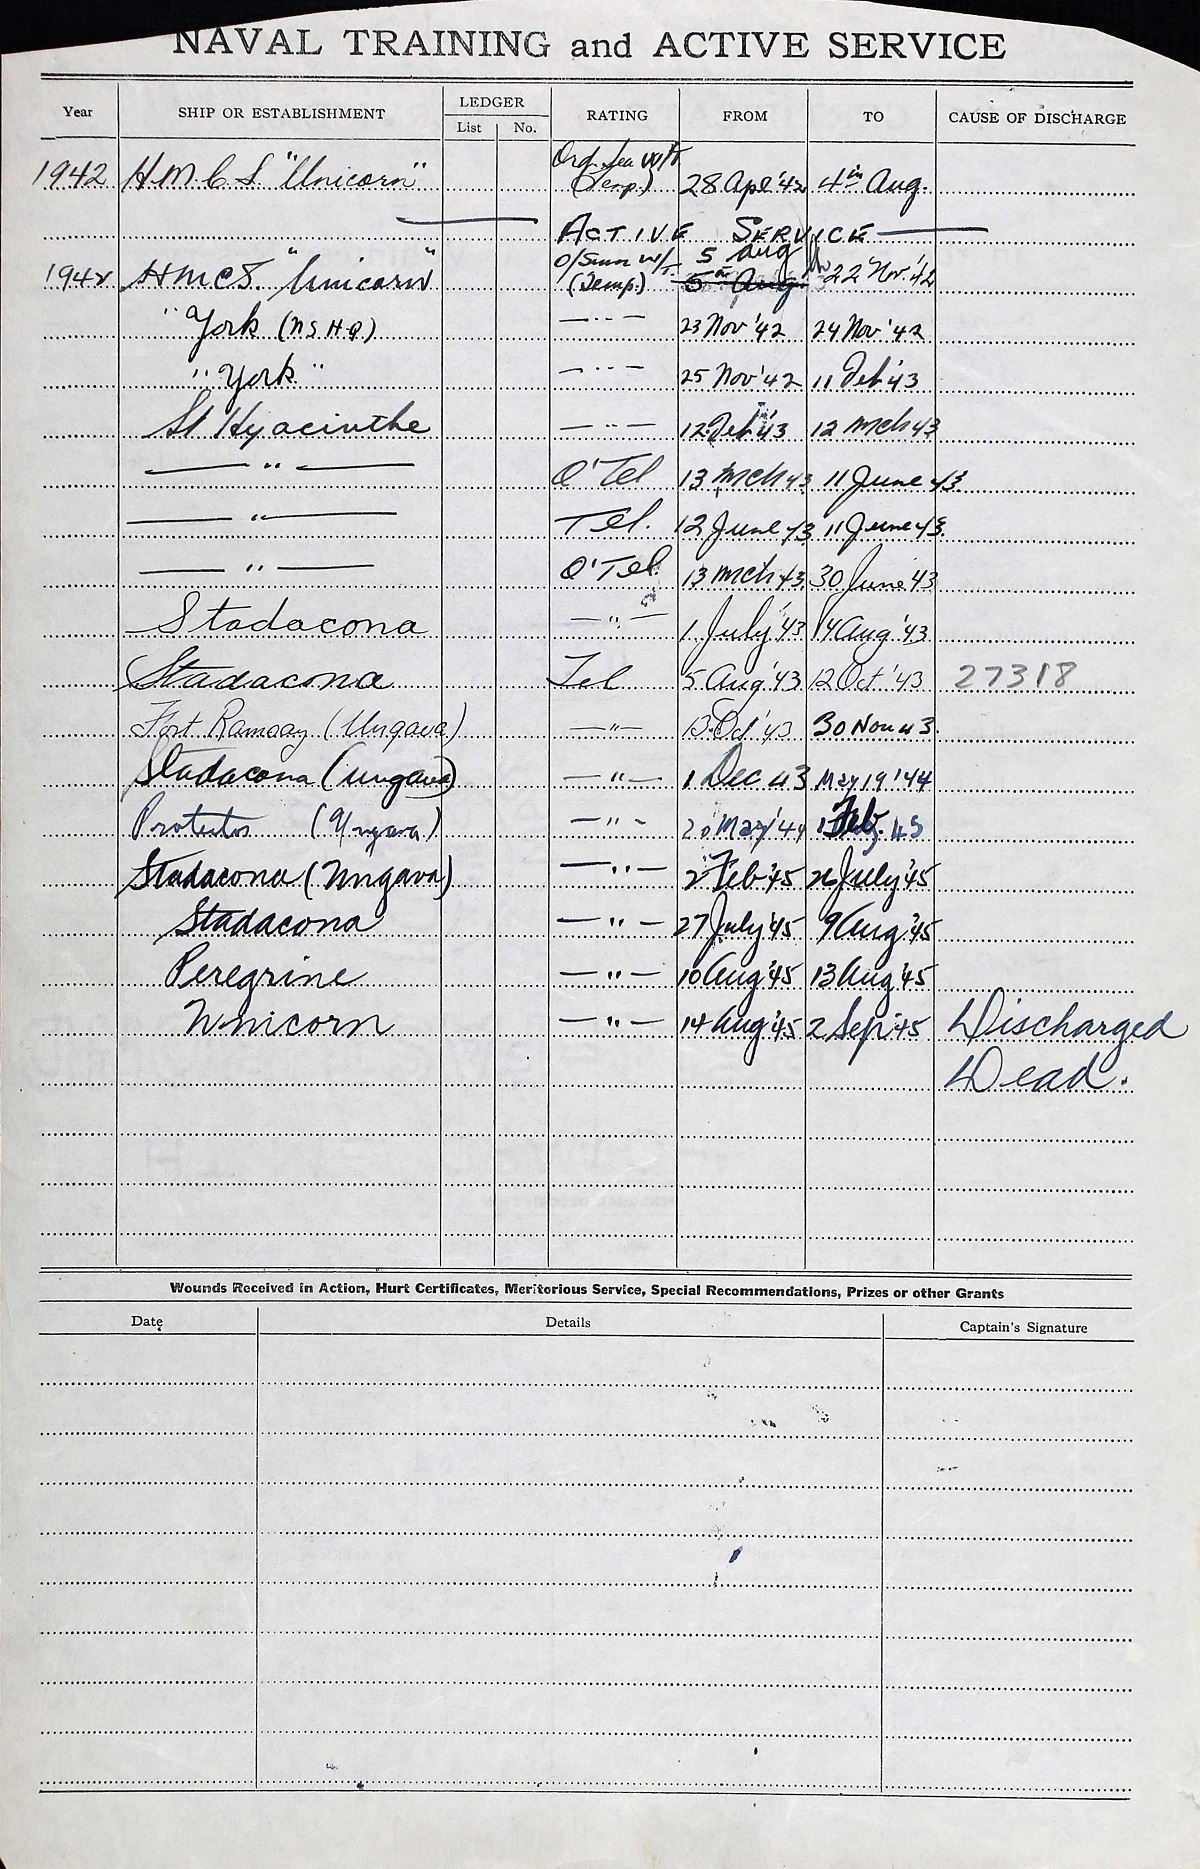 NAVAL TRAINING and ACTIVE SERVICE
Year SHIP OR ESTABLISHMENT LEDGER RATING FROM TO CAUSE OF DISCHARGE
List No.
1942 H.M.C.S. "Unicorn" Ord. Sea W/T (Temp.) 28 Apl '42 4th Aug.
ACTIVE SERVICE
1942 HMCS. "Unicorn" O/Smn W/T. (Temp.) 5 Aug 5th Aug. 22 Nov. '42
" York (NSHQ) — " — 23 Nov '42 24 Nov '42
" York " — " — 25 Nov '42 11 Feb '43
St Hyacinthe — " — 12 Feb '43 12 Mch 43
— " — O'Tel 13 Mch 43 11 June 43.
— " — Tel. 12 June 43 11 June 43.
— " — O'Tel. 13 Mch 43 30 June 43
Stadacona — " — 1 July '43 14 Aug '43
Stadacona Tel 5 Aug '43 12 Oct '43 27318
Fort Ramsay (Ungava) — " — 13 Oct '43 30 Nov 43.
Stadacona (Ungava) — " — 1 Dec 43 May 19 '44
Protector (Ungava) — " — 20 May '44 1 Feb. 45
Stadacona (Ungava) — " — 2 Feb '45 26 July '45
Stadacona — " — 27 July '45 9 Aug '45
Peregrine — " — 10 Aug '45 13 Aug '45
Unicorn — " — 14 Aug '45 2 Sep '45 Discharged
Dead.
Wounds Received in Action, Hurt Certificates, Meritorious Service, Special Recommendations, Prizes or other Grants
Date Details Captain's Signature